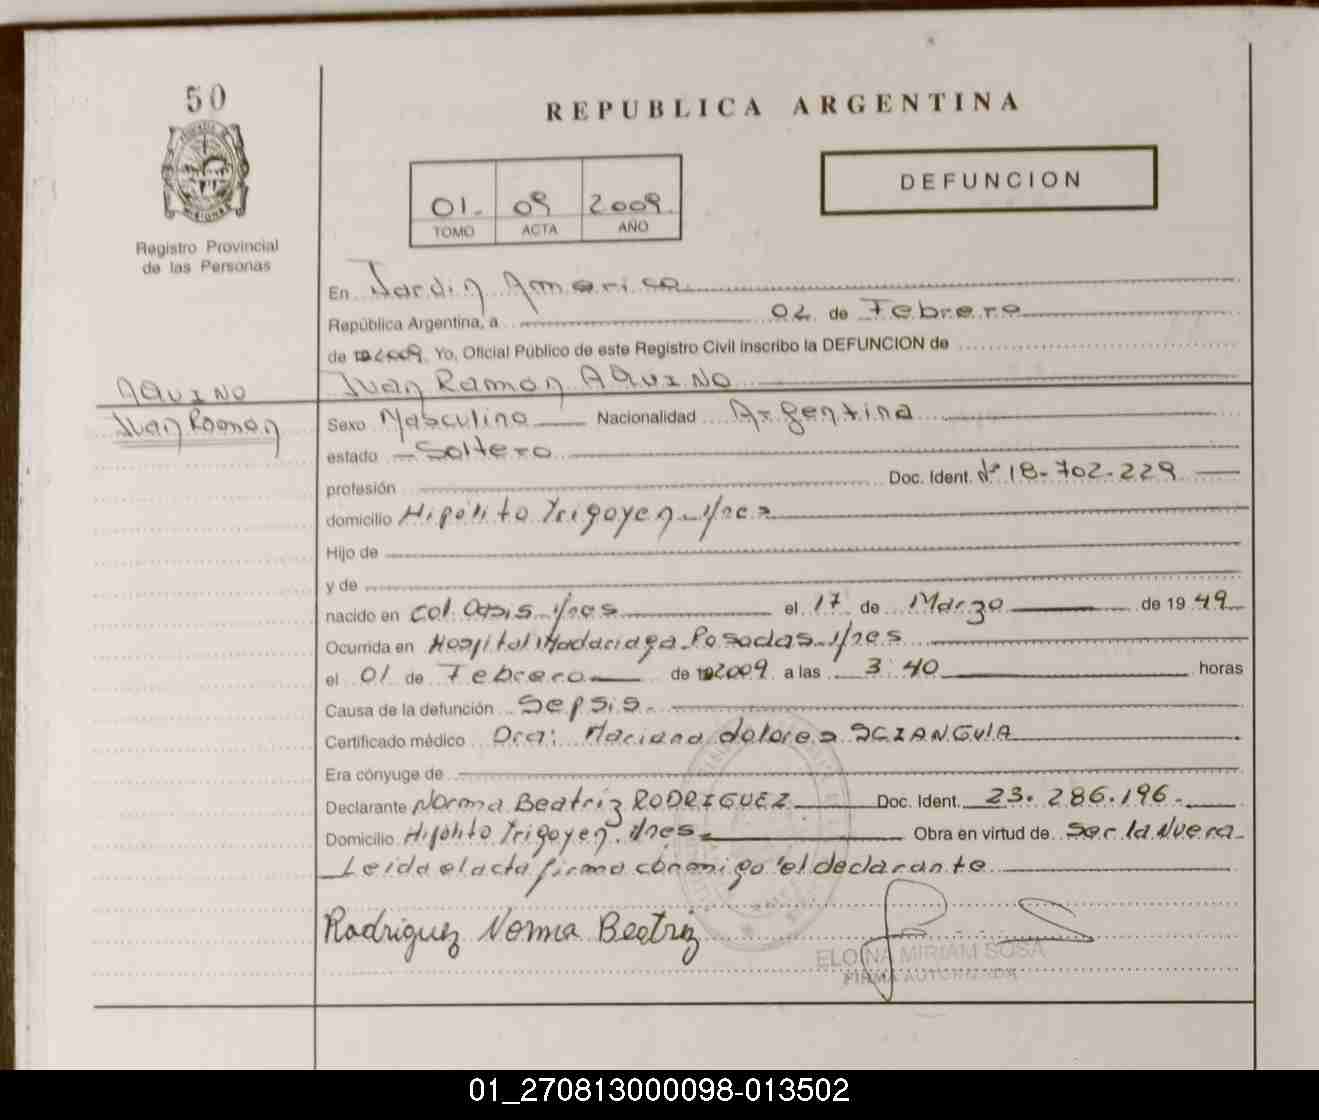 50
REPUBLICA ARGENTINA
MISIONES
Registro Provincial
de las Personas
DEFUNCION
01. 09 2009.
TOMO ACTA AÑO
En Jardin America
República Argentina, a 02 de Febrero
de 2009. Yo, Oficial Público de este Registro Civil inscribo la DEFUNCION de
AQUINO Juan Ramón AQUINO
Juan Ramon Sexo Masculino Nacionalidad Argentina
estado Soltero
profesión Doc. Ident. Nº 18-702-229
domicilio Hipólito Yrigoyen
Hijo de
y de
nacido en Col. Oasis el 17 de Marzo de 1949
Ocurrida en Hospital Madariaga Posadas
el 01 de Febrero de 2009 a las 3:40 horas
Causa de la defunción Sepsis.
Certificado médico Dra: Mariana dolores SCIANGUIA
Era cónyuge de
Declarante Norma Beatriz RODRIGUEZ Doc. Ident. 23.286.196.
Domicilio Hipólito Yrigoyen Obra en virtud de Ser la Nuera
Leida el acta firma conmigo el declarante
Rodriguez Norma Beatriz
ELOINA MIRIAM SOSA
FIRMA AUTORIZADA
01_270813000098-013502